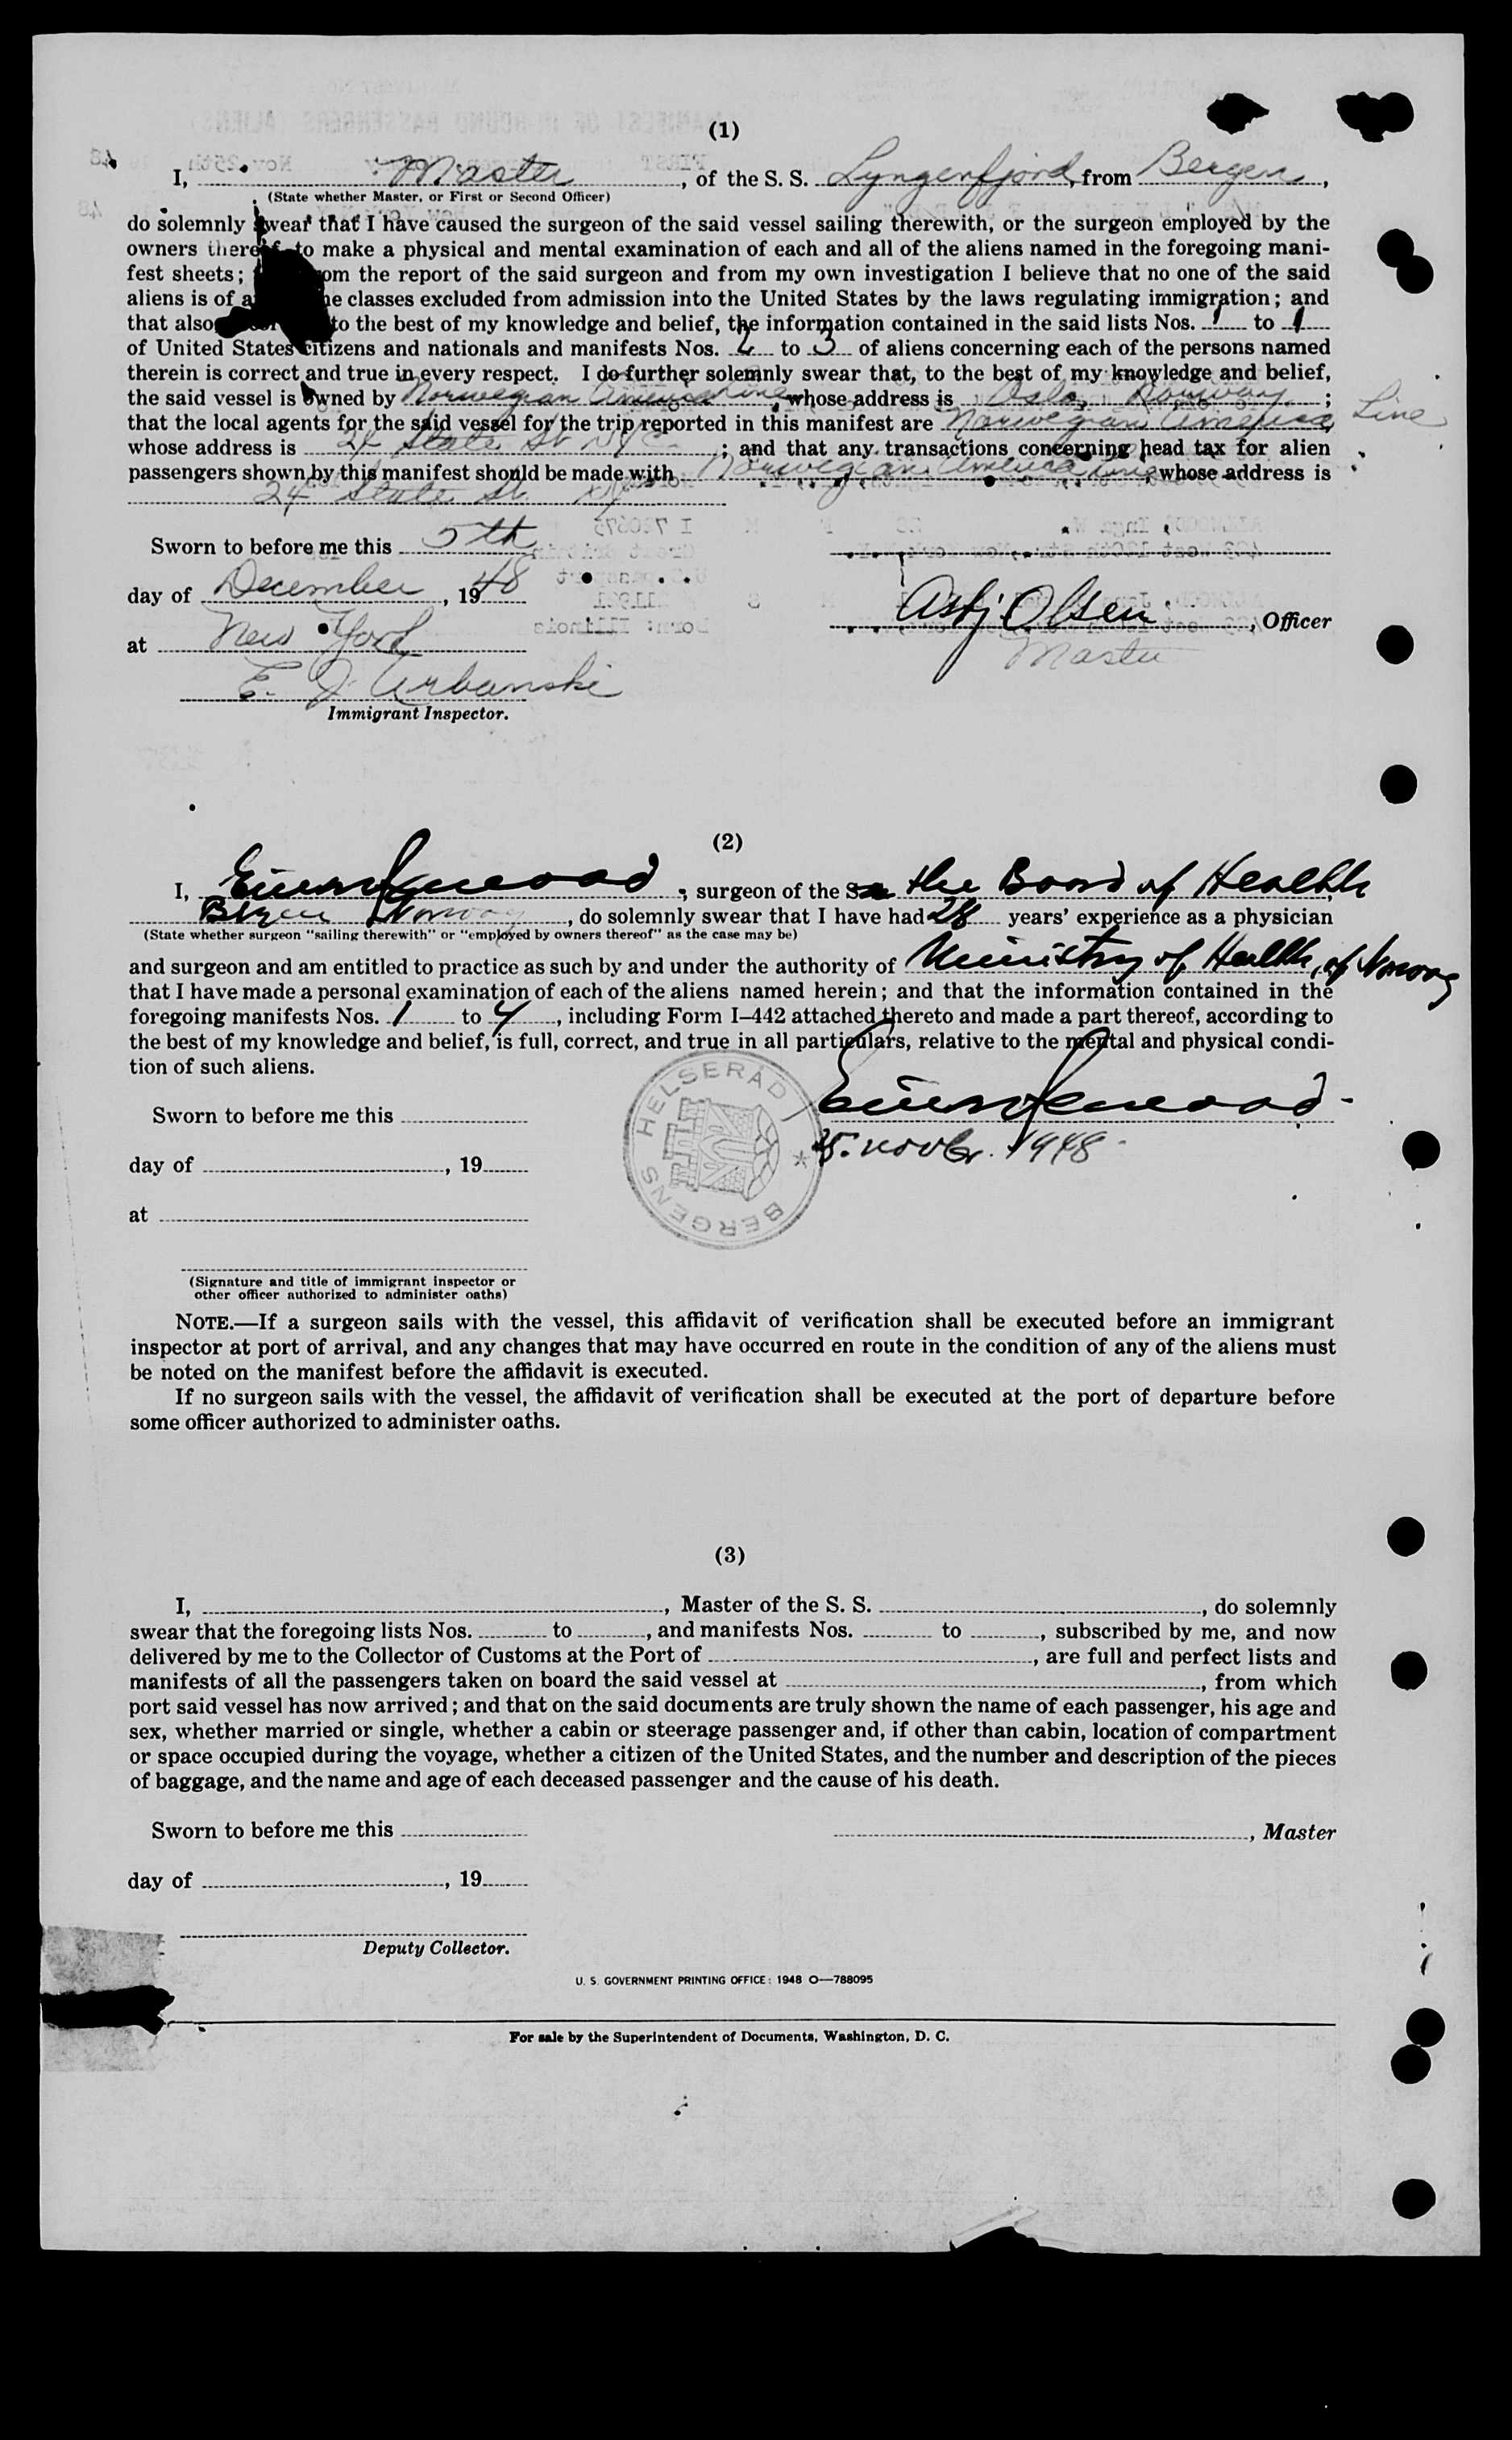 (1)
I, Master, of the S. S. Lyngenfjord, from Bergen,
(State whether Master, or First or Second Officer)
do solemnly swear that I have caused the surgeon of the said vessel sailing therewith, or the surgeon employed by the
owners thereof, to make a physical and mental examination of each and all of the aliens named in the foregoing mani-
fest sheets; om the report of the said surgeon and from my own investigation I believe that no one of the said
aliens is of a e classes excluded from admission into the United States by the laws regulating immigration; and
that also to the best of my knowledge and belief, the information contained in the said lists Nos. 1 to 1
of United States citizens and nationals and manifests Nos. 2 to 3 of aliens concerning each of the persons named
therein is correct and true in every respect. I do further solemnly swear that, to the best of my knowledge and belief,
the said vessel is owned by Norwegian America Line, whose address is Oslo, Norway;
that the local agents for the said vessel for the trip reported in this manifest are Norwegian America Line
whose address is 24 State St NYC; and that any transactions concerning head tax for alien
passengers shown by this manifest should be made with Norwegian America Line, whose address is
24 State St NY
Sworn to before me this 5th
day of December, 1948
Asbj Olsen, Officer
at New York
Master
E. J. Urbanski
Immigrant Inspector.
(2)
I, , surgeon of the S the Board of Health,
Bergen Norway, do solemnly swear that I have had 28 years' experience as a physician
(State whether surgeon "sailing therewith" or "employed by owners thereof" as the case may be)
and surgeon and am entitled to practice as such by and under the authority of Ministry of Health, of Norway
that I have made a personal examination of each of the aliens named herein; and that the information contained in the
foregoing manifests Nos. 1 to 4, including Form I–442 attached thereto and made a part thereof, according to
the best of my knowledge and belief, is full, correct, and true in all particulars, relative to the mental and physical condi-
tion of such aliens.
BERGENS HELSERÅD *
Sworn to before me this
25. novbr. 1948
day of , 19
at
(Signature and title of immigrant inspector or
other officer authorized to administer oaths)
NOTE.—If a surgeon sails with the vessel, this affidavit of verification shall be executed before an immigrant
inspector at port of arrival, and any changes that may have occurred en route in the condition of any of the aliens must
be noted on the manifest before the affidavit is executed.
If no surgeon sails with the vessel, the affidavit of verification shall be executed at the port of departure before
some officer authorized to administer oaths.
(3)
I, , Master of the S. S. , do solemnly
swear that the foregoing lists Nos. to , and manifests Nos. to , subscribed by me, and now
delivered by me to the Collector of Customs at the Port of , are full and perfect lists and
manifests of all the passengers taken on board the said vessel at , from which
port said vessel has now arrived; and that on the said documents are truly shown the name of each passenger, his age and
sex, whether married or single, whether a cabin or steerage passenger and, if other than cabin, location of compartment
or space occupied during the voyage, whether a citizen of the United States, and the number and description of the pieces
of baggage, and the name and age of each deceased passenger and the cause of his death.
Sworn to before me this
, Master
day of , 19
Deputy Collector.
U. S. GOVERNMENT PRINTING OFFICE: 1948 O—788095
For sale by the Superintendent of Documents, Washington, D. C.